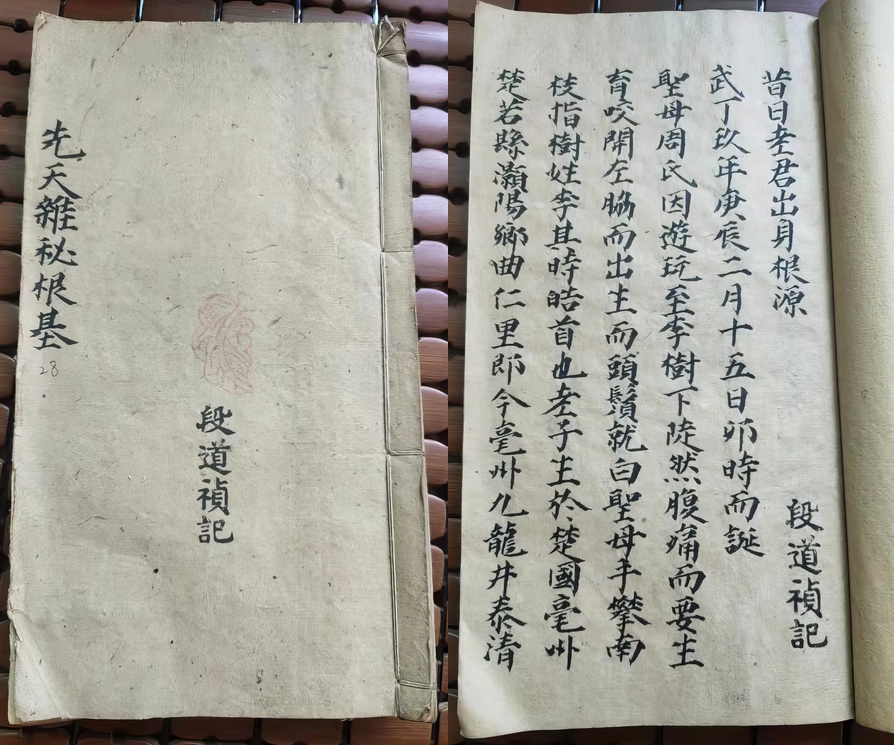 先天雜秘根基
28
段道禎記
昔日老君出身根源
段道禎記
武丁玖年庚辰二月十五日卯時而誕
聖母周氏因遊玩至李樹下陡然腹痛而要生
育咬開左脇而出生而頭鬚就白聖母手攀南
枝指樹姓李其時皓首也老子生於楚國毫州
楚若縣瀨陽鄉曲仁里郎今毫州九龍井泰清